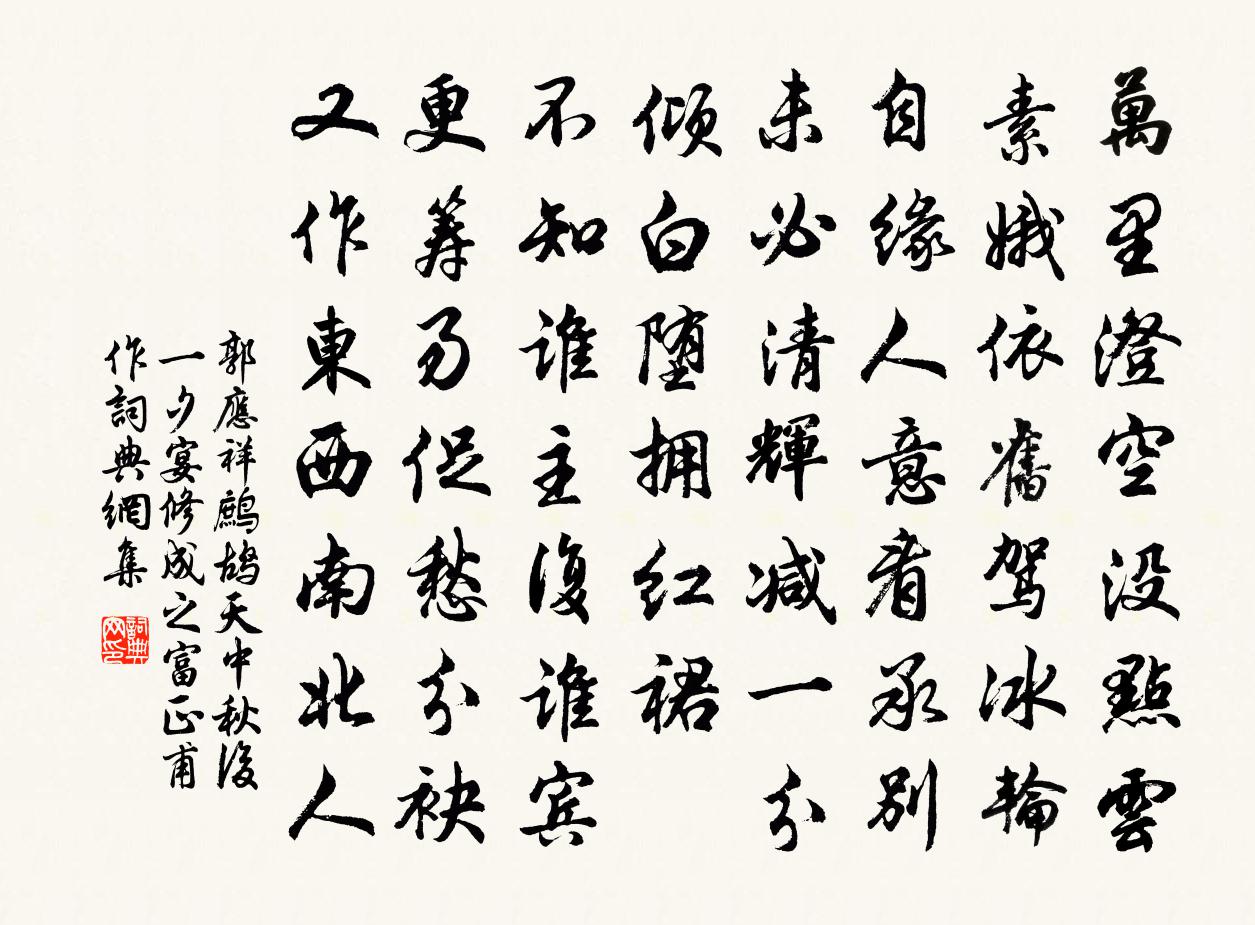 萬里澄空没點雲
素娥依舊駕冰輪
自緣人意看承别
未必清輝减一分
傾白堕拥红裙
不知誰主復誰宾
更筹易促愁分袂
又作東西南北人
郭應祥鷓鴣天中秋後
一夕宴修成之富正甫
作詞典網集
詞典网印